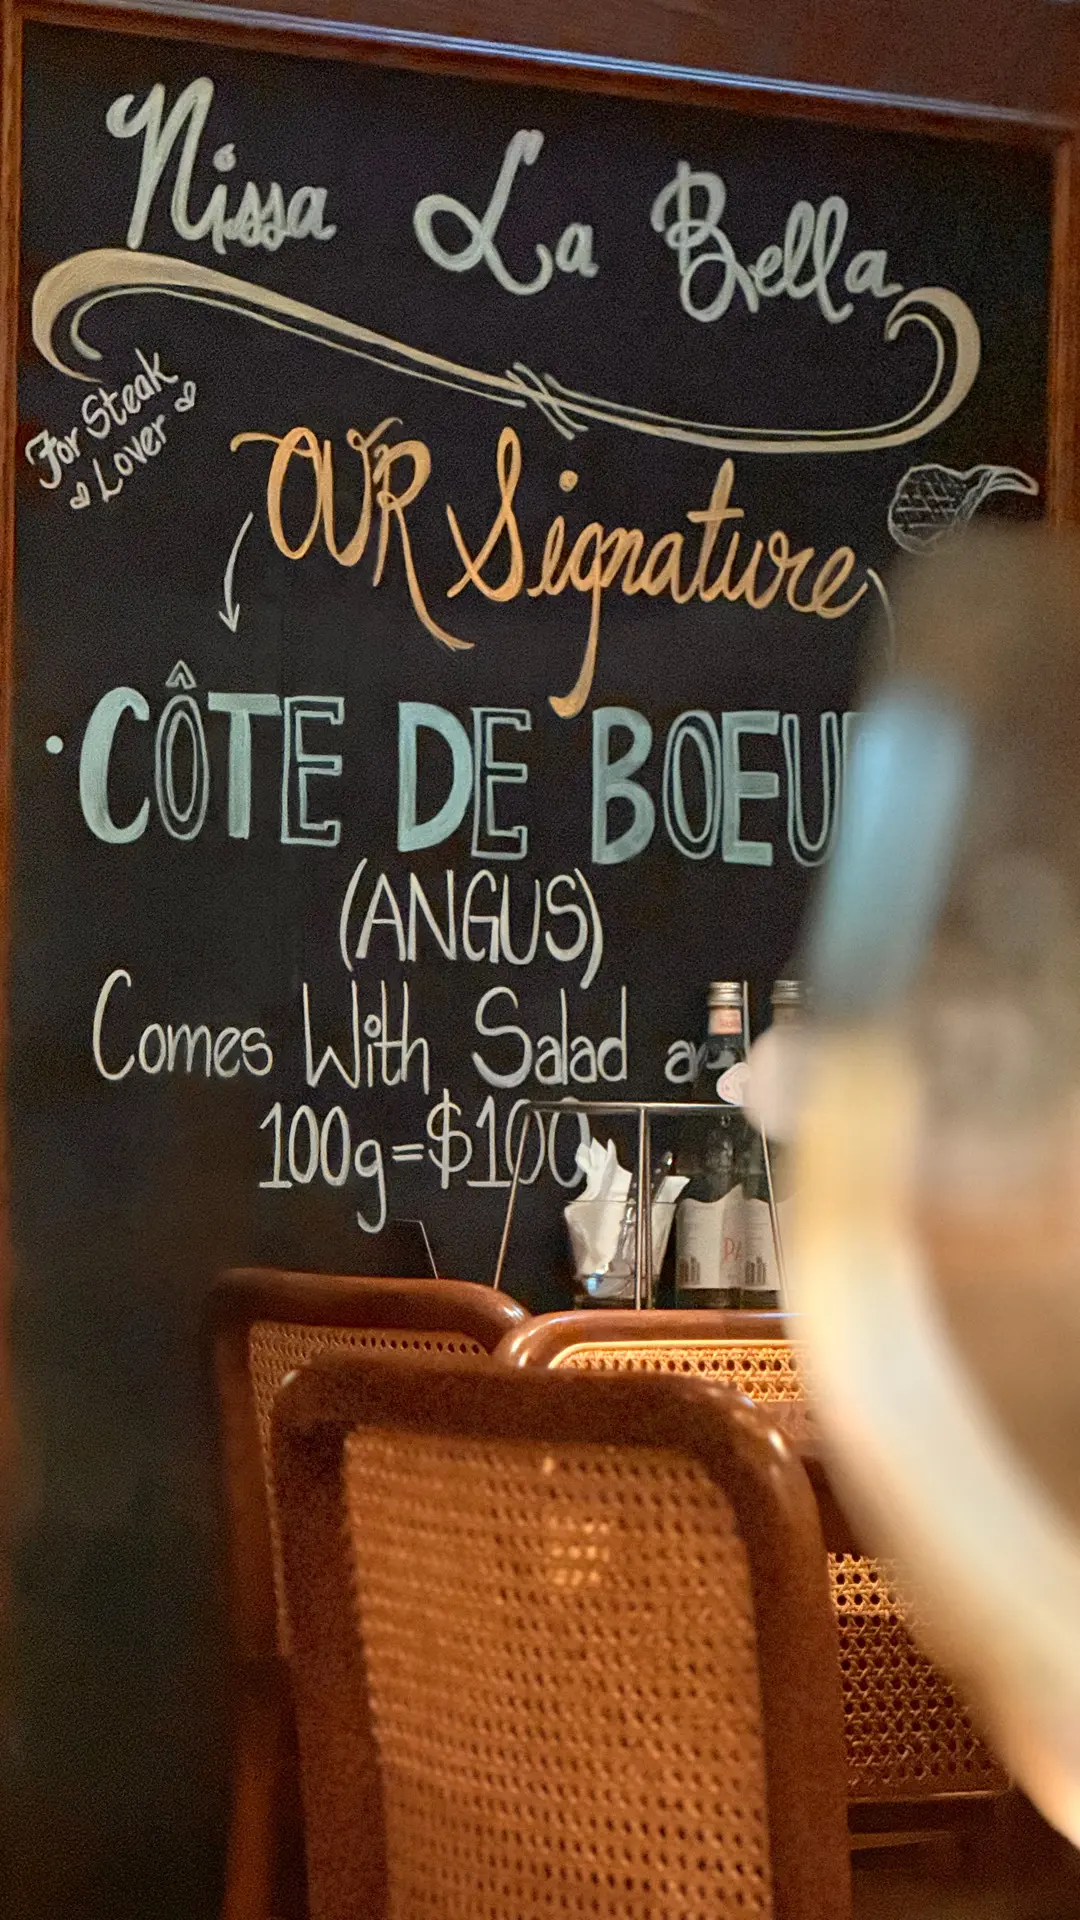 Nissa La Bella
For Steak
Lover
OUR Signature
CÔTE DE BOEU
(ANGUS)
Comes With Salad
100g=$100